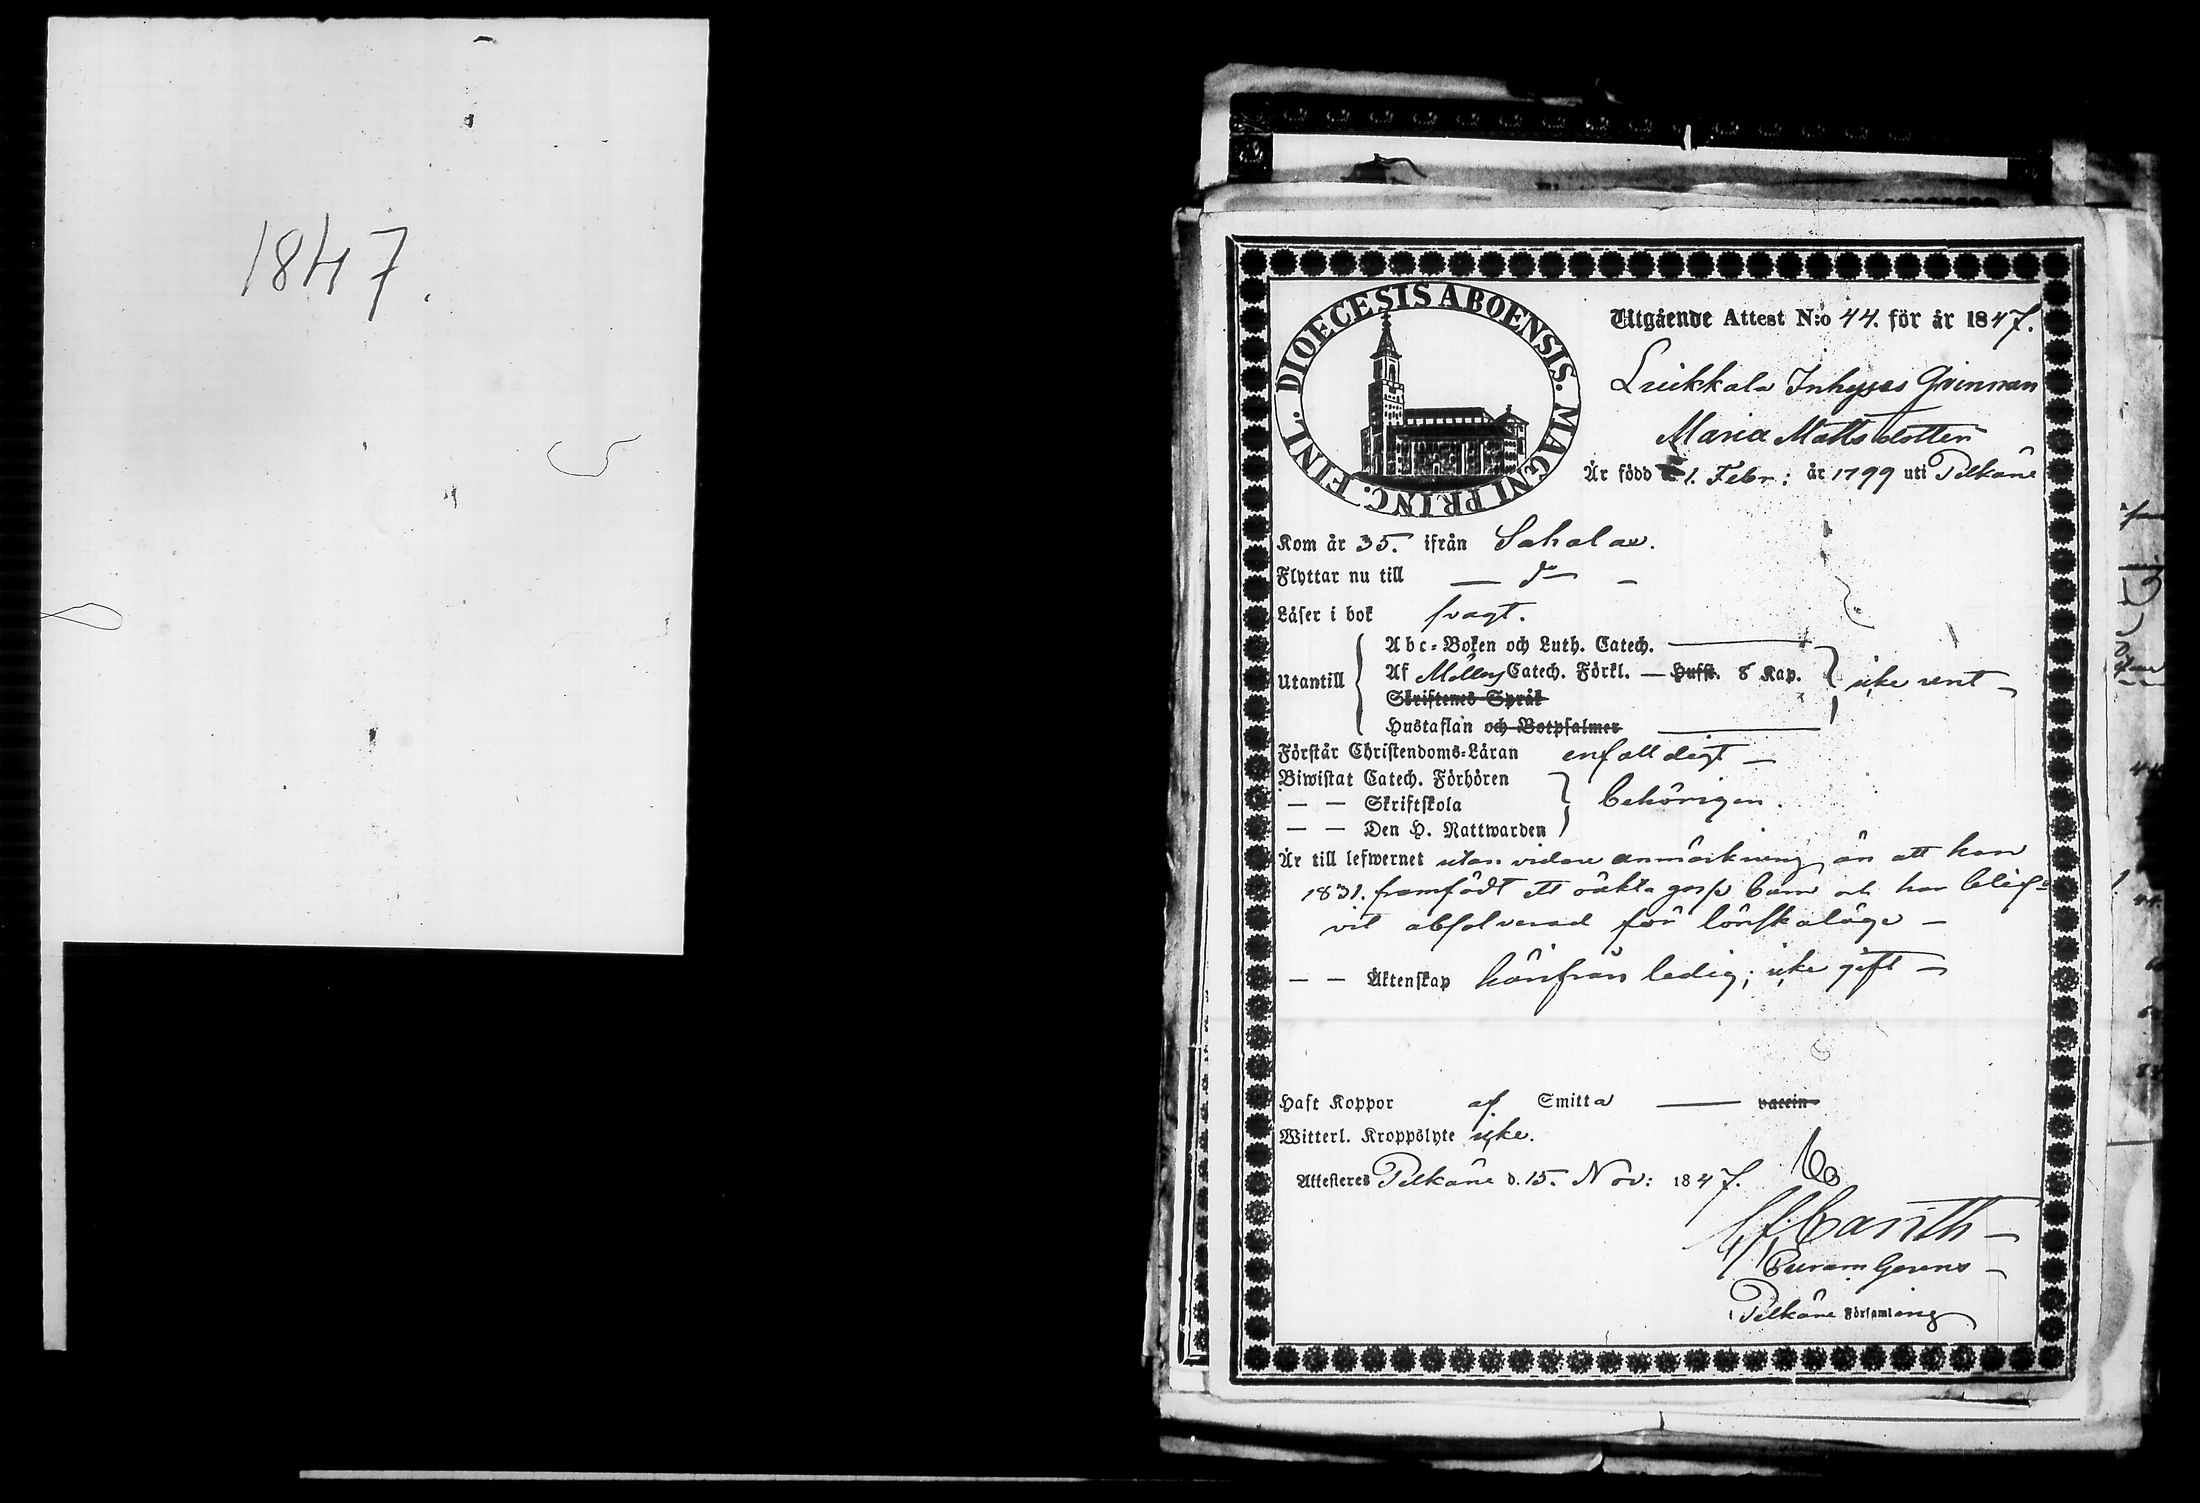 1847.
DIOECESIS ABOENSIS. MAGNI PRINC. FINL.
Utgående Attest N:o 44. för år 1847.
Luikkala Inhyses Qvinnan
Maria Mattsdotter
Är född 1. Febr: år 1799 uti Pelkäne
Kom år 35. ifrån Sahalax.
Flyttar nu till — d:o —
Läser i bok svagt.
Utantill
Abc-Boken och Luth. Catech.
Af Möllers Catech. Förkl. — Hufst. 8 Kap.
Skriftenes Språk
Hustaflan och Botpsalmer
icke rent —
Förstår Christendoms-Läran enfalldigt —
Biwistat Catech. Förhören
— — Skriftskola
— — Den H. Nattwarden
behörigen.
Är till lefwernet utan vidare anmärkning, än att hon
1831. framfödt ett oäkta gosse barn och har blif-
vit absolverad för lönskaläge —
— — Äktenskap härifrån ledig; icke gift —
Haft Koppor af Smitta — vaccin
Witterl. Kroppslyte icke.
Attesteres Pelkäne d. 15. Nov: 1847.
Pelkäne Församling